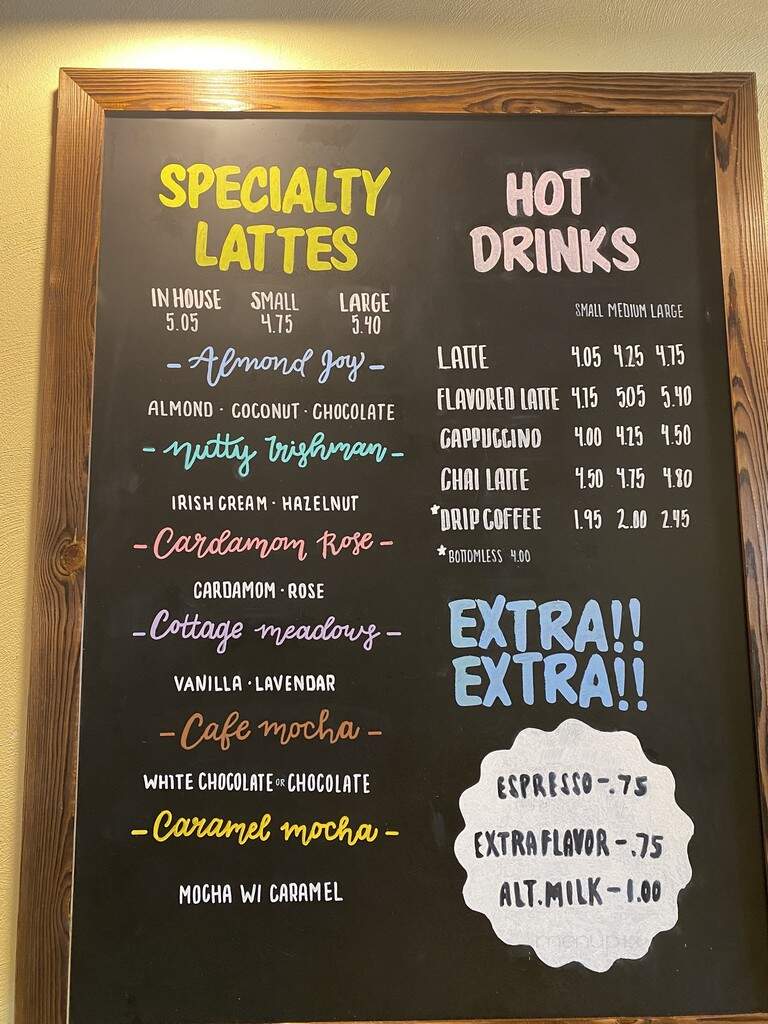 SPECIALTY
LATTES
IN HOUSE SMALL LARGE
5.05 4.75 5.40
- Almond Joy -
ALMOND · COCONUT · CHOCOLATE
- Nutty Irishman -
IRISH CREAM · HAZELNUT
- Cardamom Rose -
CARDAMOM · ROSE
- Cottage meadows -
VANILLA · LAVENDAR
- Cafe mocha -
WHITE CHOCOLATE OR CHOCOLATE
- Caramel mocha -
MOCHA W/ CARAMEL
HOT
DRINKS
SMALL MEDIUM LARGE
LATTE 4.05 4.25 4.75
FLAVORED LATTE 4.75 5.05 5.40
CAPPUCCINO 4.00 4.25 4.50
CHAI LATTE 4.50 4.75 4.80
*DRIP COFFEE 1.95 2.00 2.45
*BOTTOMLESS 4.00
EXTRA!!
EXTRA!!
ESPRESSO - .75
EXTRA FLAVOR - .75
ALT. MILK - 1.00
menupix